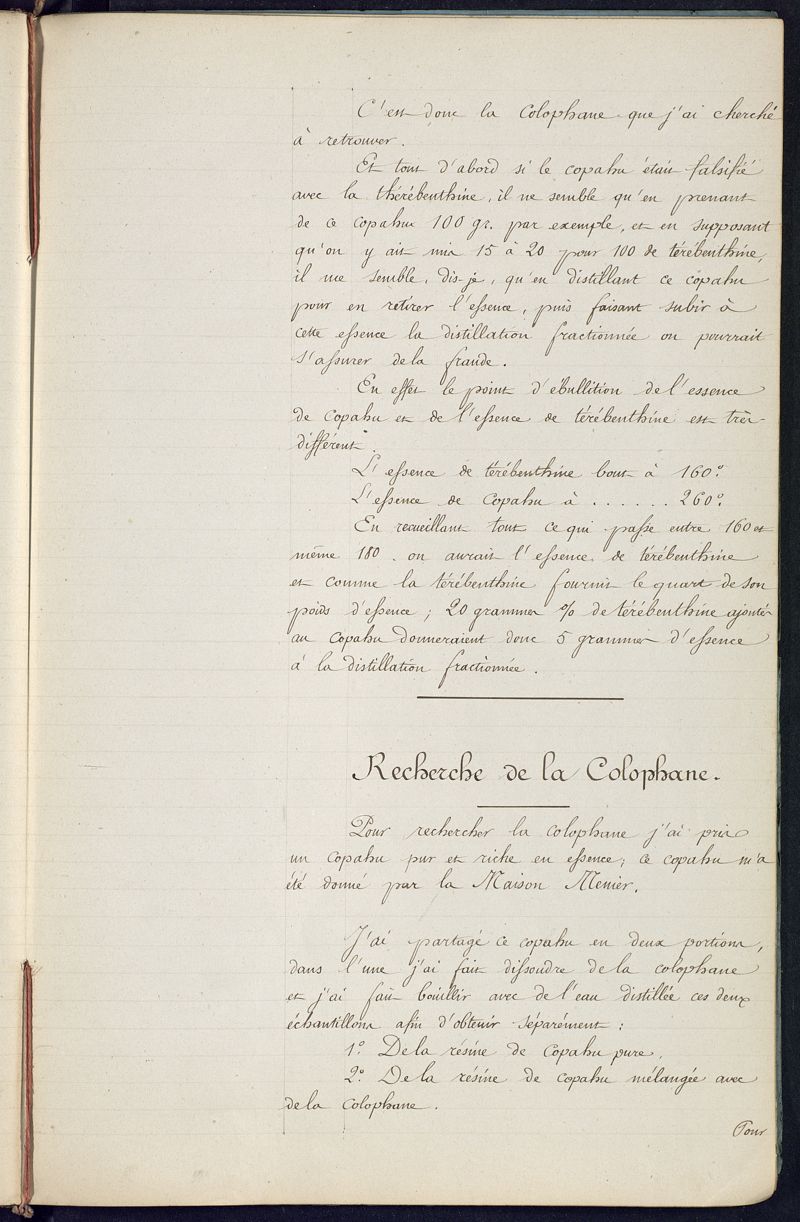 C'est donc la Colophane que j'ai cherché
à retrouver.
Et tout d'abord si le copahu était falsifié
avec la thérébenthine, il me semble qu'en prenant
de ce copahu 100 gr. par exemple, et en supposant
qu'on y ait mis 15 à 20 pour 100 de térébenthine,
il me semble, dis-je, qu'en distillant ce copahu
pour en retirer l'essence, puis faisant subir à
cette essence la distillation fractionnée on pourrait
s'assurer de la fraude.
En effet le point d'ébullition de l'essence
de copahu et de l'essence de térébenthine est très
différent.
L'essence de térébenthine bout à 160°.
L'essence de Copahu à . . . . . . 260°.
En recueillant tout ce qui passe entre 160 et
même 180. on aurait l'essence de térébenthine
et comme la térébenthine fournit le quart de son
poids d'essence ; 20 grammes % de térébenthine ajoutés
au Copahu donneraient donc 5 grammes d'essence
à la distillation fractionnée.
Recherche de la Colophane.
Pour rechercher la colophane j'ai pris
un Copahu pur et riche en essence ; ce copahu m'a
été donné par la Maison Menier.
J'ai partagé ce copahu en deux portions,
dans l'une j'ai fait dissoudre de la colophane
et j'ai fait bouillir avec de l'eau distillée ces deux
échantillons afin d'obtenir séparément :
1° De la résine de Copahu pure.
2° De la résine de copahu mélangée avec
de la Colophane.
Pour